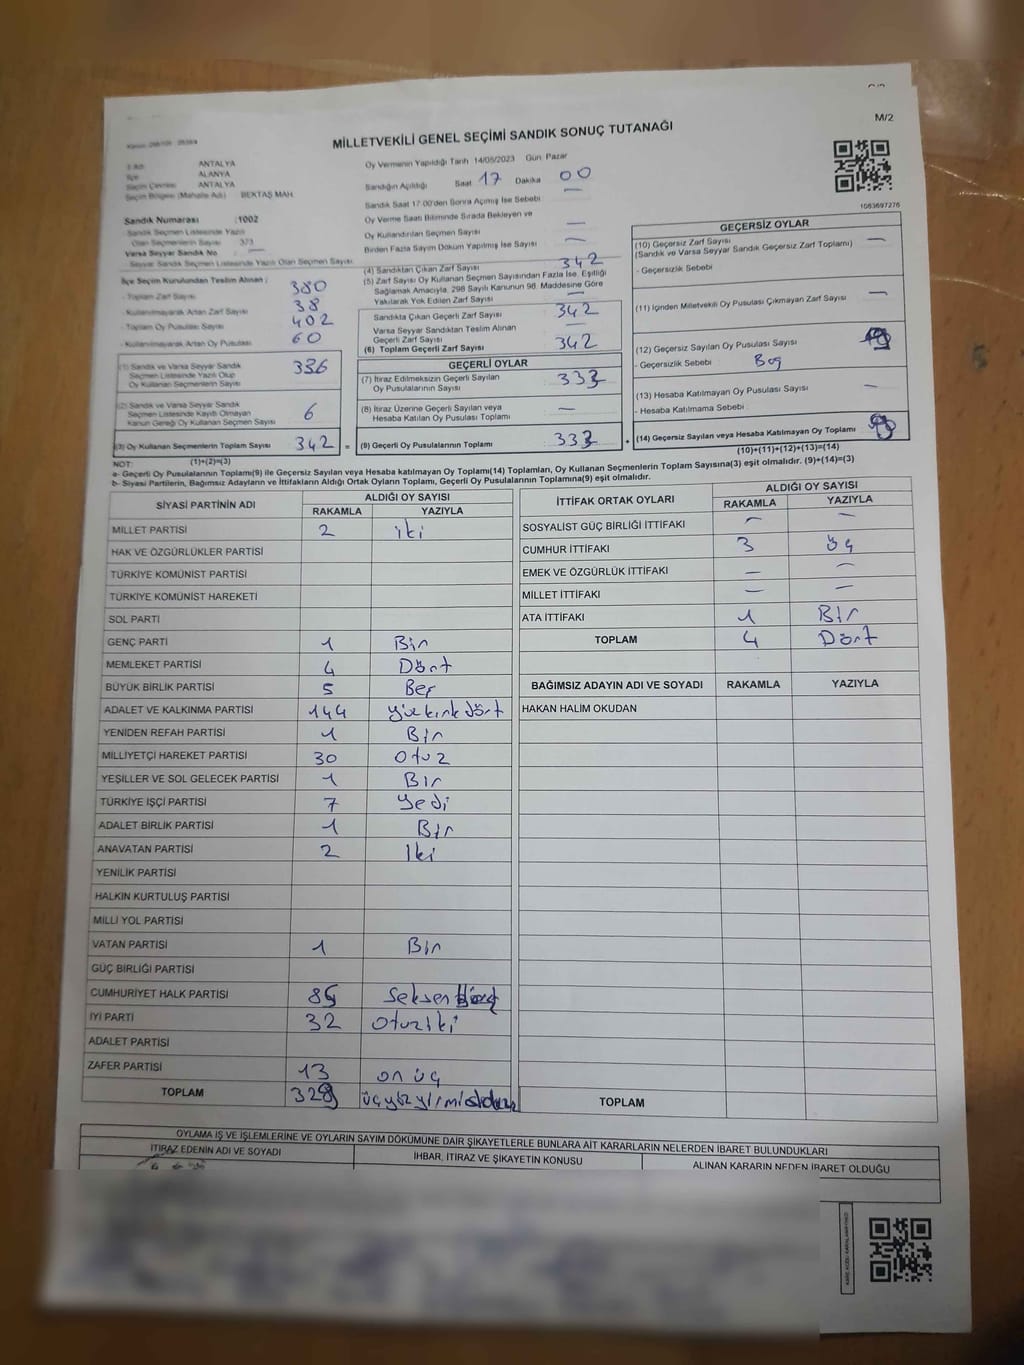 M/2
MİLLETVEKİLİ GENEL SEÇİMİ SANDIK SONUÇ TUTANAĞI
1063697276
ANTALYA
ALANYA
Seçim Çevresi ANTALYA
Seçim Bölgesi (Mahalle Adı) BEKTAŞ MAH.
Sandık Numarası :1002
Sandık Seçmen Listesinde Yazılı
Olan Seçmenlerin Sayısı 373
Varsa Seyyar Sandık No
Seyyar Sandık Seçmen Listesinde Yazılı Olan Seçmen Sayısı
Oy Vermenin Yapıldığı Tarih 14/05/2023 Gün Pazar
Sandığın Açıldığı Saat 17 Dakika 00
Sandık Saat 17:00'den Sonra Açılmış İse Sebebi —
Oy Verme Saati Bitiminde Sırada Bekleyen ve
Oy Kullandırılan Seçmen Sayısı —
Birden Fazla Sayım Döküm Yapılmış İse Sayısı —
İlçe Seçim Kurulundan Teslim Alınan :
- Toplam Zarf Sayısı 380
- Kullanılmayarak Artan Zarf Sayısı 38
- Toplam Oy Pusulası Sayısı 402
- Kullanılmayarak Artan Oy Pusulası 60
(1) Sandık ve Varsa Seyyar Sandık
Seçmen Listesinde Yazılı Olup
Oy Kullanan Seçmenlerin Sayısı 336
(2) Sandık ve Varsa Seyyar Sandık
Seçmen Listesinde Kayıtlı Olmayan
Kanun Gereği Oy Kullanan Seçmen Sayısı 6
(3) Oy Kullanan Seçmenlerin Toplam Sayısı 342 =
(4) Sandıktan Çıkan Zarf Sayısı 342
(5) Zarf Sayısı Oy Kullanan Seçmen Sayısından Fazla İse, Eşitliği
Sağlamak Amacıyla, 298 Sayılı Kanunun 98. Maddesine Göre
Yakılarak Yok Edilen Zarf Sayısı —
Sandıkta Çıkan Geçerli Zarf Sayısı 342
Varsa Seyyar Sandıktan Teslim Alınan
Geçerli Zarf Sayısı —
(6) Toplam Geçerli Zarf Sayısı 342
GEÇERLİ OYLAR
(7) İtiraz Edilmeksizin Geçerli Sayılan
Oy Pusulalarının Sayısı 333
(8) İtiraz Üzerine Geçerli Sayılan veya
Hesaba Katılan Oy Pusulası Toplamı —
(9) Geçerli Oy Pusulalarının Toplamı 333 +
GEÇERSİZ OYLAR
(10) Geçersiz Zarf Sayısı —
(Sandık ve Varsa Seyyar Sandık Geçersiz Zarf Toplamı)
- Geçersizlik Sebebi
(11) İçinden Milletvekili Oy Pusulası Çıkmayan Zarf Sayısı —
(12) Geçersiz Sayılan Oy Pusulası Sayısı
- Geçersizlik Sebebi Boş
(13) Hesaba Katılmayan Oy Pusulası Sayısı —
- Hesaba Katılmama Sebebi :
(14) Geçersiz Sayılan veya Hesaba Katılmayan Oy Toplamı
(10)+(11)+(12)+(13)=(14)
NOT: (1)+(2)=(3)
a- Geçerli Oy Pusulalarının Toplamı(9) ile Geçersiz Sayılan veya Hesaba katılmayan Oy Toplamı(14) Toplamları, Oy Kullanan Seçmenlerin Toplam Sayısına(3) eşit olmalıdır. (9)+(14)=(3)
b- Siyasi Partilerin, Bağımsız Adayların ve İttifakların Aldığı Ortak Oyların Toplamı, Geçerli Oy Pusulalarının Toplamına(9) eşit olmalıdır.
SİYASİ PARTİNİN ADI ALDIĞI OY SAYISI
RAKAMLA YAZIYLA
MİLLET PARTİSİ 2 iki
HAK VE ÖZGÜRLÜKLER PARTİSİ
TÜRKİYE KOMÜNİST PARTİSİ
TÜRKİYE KOMÜNİST HAREKETİ
SOL PARTİ
GENÇ PARTİ 1 Bir
MEMLEKET PARTİSİ 4 Dört
BÜYÜK BİRLİK PARTİSİ 5 Beş
ADALET VE KALKINMA PARTİSİ 144 yüzkırkdört
YENİDEN REFAH PARTİSİ 1 Bir
MİLLİYETÇİ HAREKET PARTİSİ 30 Otuz
YEŞİLLER VE SOL GELECEK PARTİSİ 1 Bir
TÜRKİYE İŞÇİ PARTİSİ 7 Yedi
ADALET BİRLİK PARTİSİ 1 Bir
ANAVATAN PARTİSİ 2 İki
YENİLİK PARTİSİ
HALKIN KURTULUŞ PARTİSİ
MİLLİ YOL PARTİSİ
VATAN PARTİSİ 1 Bir
GÜÇ BİRLİĞİ PARTİSİ
CUMHURİYET HALK PARTİSİ 85 Seksen
İYİ PARTİ 32 Otuziki
ADALET PARTİSİ
ZAFER PARTİSİ 13 on üç
TOPLAM 329
İTTİFAK ORTAK OYLARI ALDIĞI OY SAYISI
RAKAMLA YAZIYLA
SOSYALİST GÜÇ BİRLİĞİ İTTİFAKI — —
CUMHUR İTTİFAKI 3 üç
EMEK VE ÖZGÜRLÜK İTTİFAKI — —
MİLLET İTTİFAKI — —
ATA İTTİFAKI 1 Bir
TOPLAM 4 Dört
BAĞIMSIZ ADAYIN ADI VE SOYADI RAKAMLA YAZIYLA
HAKAN HALİM OKUDAN
TOPLAM
OYLAMA İŞ VE İŞLEMLERİNE VE OYLARIN SAYIM DÖKÜMÜNE DAİR ŞİKAYETLERLE BUNLARA AİT KARARLARIN NELERDEN İBARET BULUNDUKLARI
İTİRAZ EDENİN ADI VE SOYADI İHBAR, İTİRAZ VE ŞİKAYETİN KONUSU ALINAN KARARIN NEDEN İBARET OLDUĞU